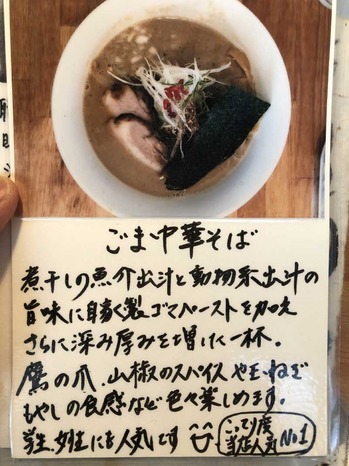 ごま中華そば
煮干しの魚介出汁と動物系出汁の
旨味に自家製ゴマペーストを加え
さらに深み厚みを増した一杯。
鷹の爪、山椒のスパイスや玉ねぎ
もやしの食感など色々楽しめます。
学生、女性にも人気です
こってり度
当店人気 No1